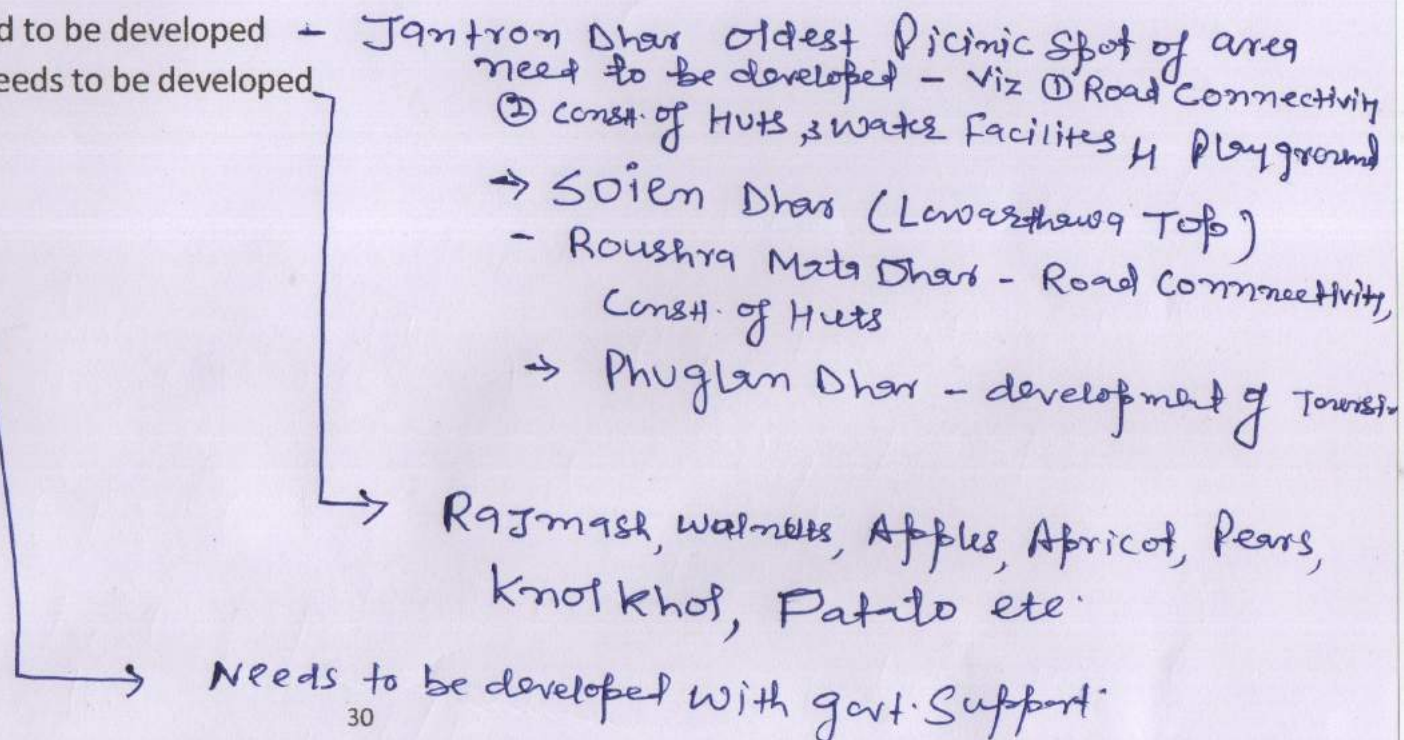 d to be developed - Jantron Dhar oldest Picinic Spot of area
need to be developed - Viz ① Road Connectivity
eeds to be developed
② Constt. of Huts, 3 Water Facilites 4 Playground
→ Soien Dhar (Lowarthawa Top)
- Roushra Mata Dhar - Road Commnectivity,
Constt. of Huts
→ Phuglan Dhar - development of
Rajmash, walnuts, Apples, Apricot, Pears,
Knolkhol, Patato etc
Needs to be developed with govt. Support
30